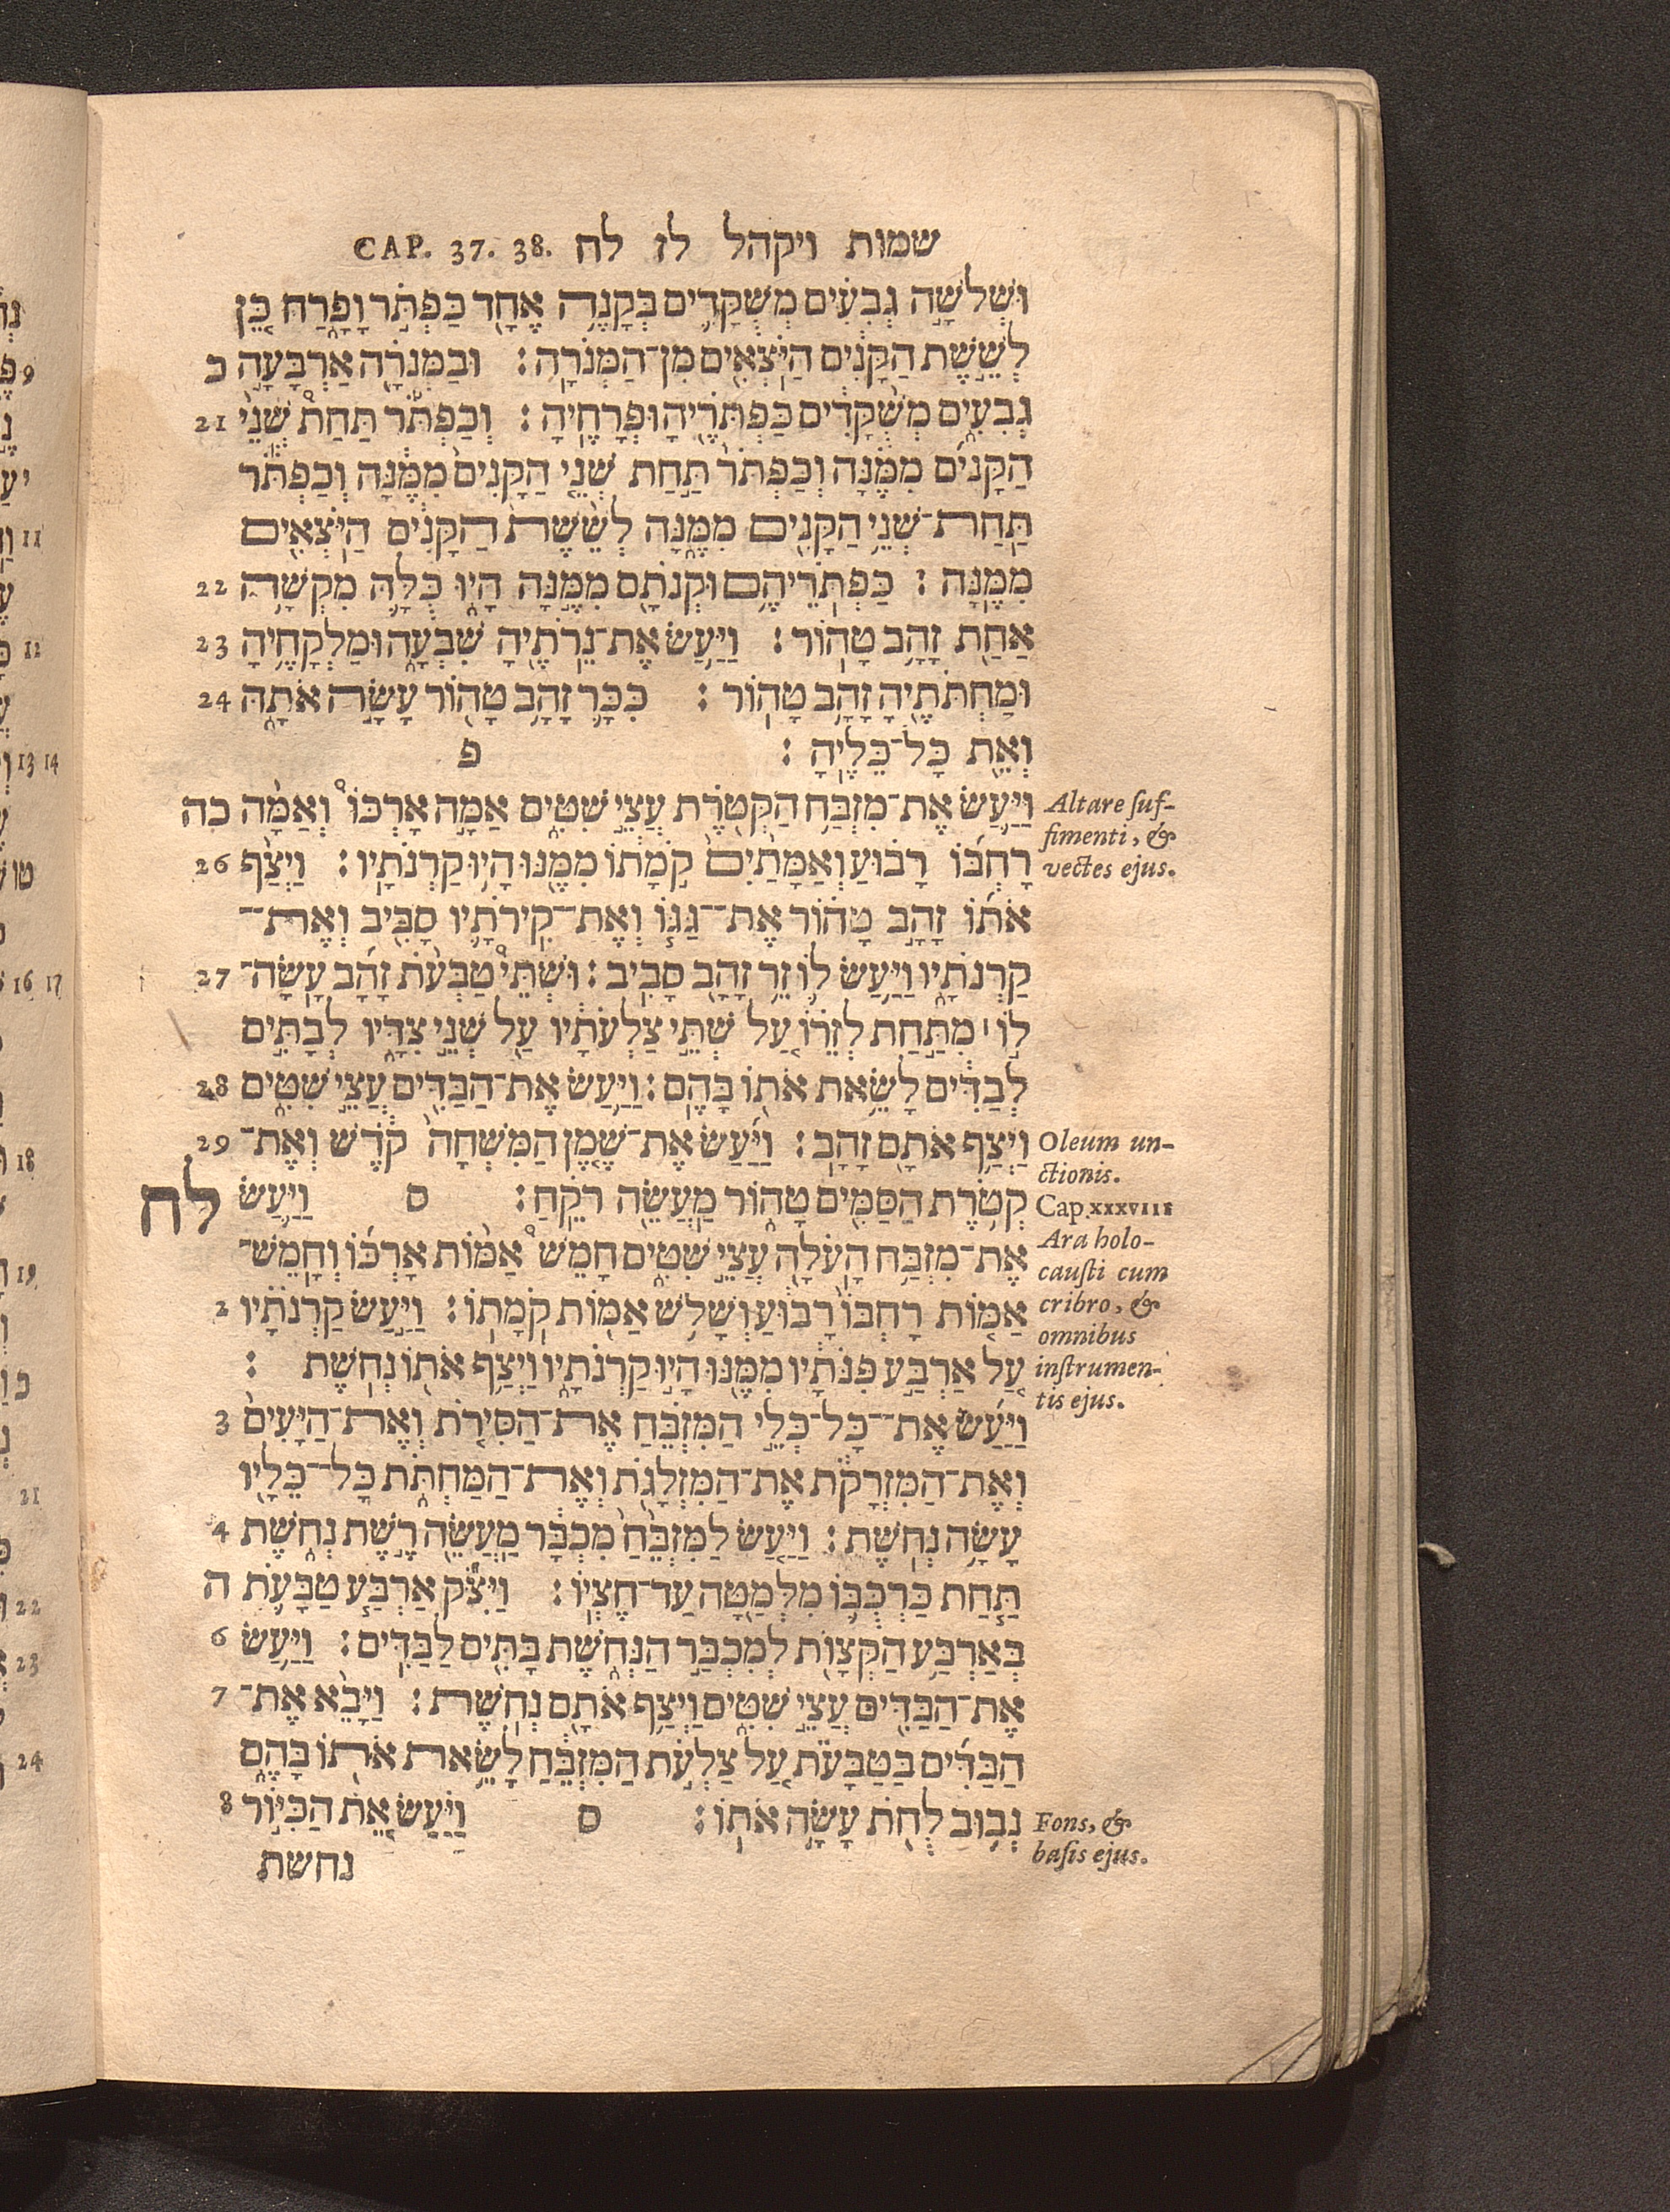 שמות ויקהל לז לח CAP. 37. 38.
וּשְׁלֹשָׁ֣ה גְבִעִ֗ים מְשֻׁקָּדִ֛ים בְּקָנֶ֥ה אֶחָ֖ד כַּפְתֹּ֣ר וָפָ֑רַח כֵּ֚ן
לְשֵׁ֣שֶׁת הַקָּנִ֔ים הַיֹּצְאִ֖ים מִן־הַמְּנֹרָֽה׃ וּבַמְּנֹרָ֖ה אַרְבָּעָ֣ה כ
גְבִעִ֑ים מְשֻׁ֨קָּדִ֔ים כַּפְתֹּרֶ֖יהָ וּפְרָחֶֽיהָ׃ וְכַפְתֹּ֡ר תַּחַת֩ שְׁנֵ֨י 21
הַקָּנִ֜ים מִמֶּ֗נָּה וְכַפְתֹּר֙ תַּ֣חַת שְׁנֵ֤י הַקָּנִים֙ מִמֶּ֔נָּה וְכַפְתֹּ֕ר
תַּֽחַת־שְׁנֵ֥י הַקָּנִ֖ים מִמֶּ֑נָּה לְשֵׁ֙שֶׁת֙ הַקָּנִ֔ים הַיֹּצְאִ֖ים
מִמֶּֽנָּה׃ כַּפְתֹּרֵיהֶ֥ם וּקְנֹתָ֖ם מִמֶּ֣נָּה הָי֑וּ כֻּלָּ֛הּ מִקְשָׁ֥ה 22
אַחַ֖ת זָהָ֥ב טָהֽוֹר׃ וַיַּ֥עַשׂ אֶת־נֵרֹתֶ֖יהָ שִׁבְעָ֑ה וּמַלְקָחֶ֥יהָ 23
וּמַחְתֹּתֶ֖יהָ זָהָ֥ב טָהֽוֹר׃ כִּכָּ֛ר זָהָ֥ב טָה֖וֹר עָשָׂ֣ה אֹתָ֑הּ 24
וְאֵ֖ת כָּל־כֵּלֶֽיהָ׃ פ
וַיַּ֛עַשׂ אֶת־מִזְבַּ֥ח הַקְּטֹ֖רֶת עֲצֵ֣י שִׁטִּ֑ים אַמָּ֣ה אָרְכּוֹ֩ וְאַמָּ֨ה כה
רָחְבּ֜וֹ רָב֗וּעַ וְאַמָּתַ֙יִם֙ קֹֽמָת֔וֹ מִמֶּ֖נּוּ הָי֥וּ קַרְנֹתָֽיו׃ וַיְצַ֨ף 26
אֹת֜וֹ זָהָ֣ב טָה֗וֹר אֶת־גַּגּ֧וֹ וְאֶת־קִירֹתָ֛יו סָבִ֖יב וְאֶת־
קַרְנֹתָ֑יו וַיַּ֥עַשׂ ל֛וֹ זֵ֥ר זָהָ֖ב סָבִֽיב׃ וּשְׁתֵּי֩ טַבְּעֹ֨ת זָהָ֜ב עָֽשָׂה־ 27
ל֣וֹ ׀ מִתַּ֣חַת לְזֵר֗וֹ עַ֚ל שְׁתֵּ֣י צַלְעֹתָ֔יו עַ֖ל שְׁנֵ֣י צִדָּ֑יו לְבָתִּ֣ים
לְבַדִּ֔ים לָשֵׂ֥את אֹת֖וֹ בָּהֶֽם׃ וַיַּ֥עַשׂ אֶת־הַבַּדִּ֖ים עֲצֵ֣י שִׁטִּ֑ים 28
וַיְצַ֥ף אֹתָ֖ם זָהָֽב׃ וַיַּ֜עַשׂ אֶת־שֶׁ֤מֶן הַמִּשְׁחָה֙ קֹ֔דֶשׁ וְאֶת־ 29
קְטֹ֥רֶת הַסַּמִּ֖ים טָה֑וֹר מַעֲשֵׂ֖ה רֹקֵֽחַ׃ ס וַיַּ֛עַשׂ לח
אֶת־מִזְבַּ֥ח הָעֹלָ֖ה עֲצֵ֣י שִׁטִּ֑ים חָמֵשׁ֩ אַמּ֨וֹת אָרְכּ֜וֹ וְחָֽמֵשׁ־
אַמּ֤וֹת רָחְבּוֹ֙ רָב֔וּעַ וְשָׁלֹ֥שׁ אַמּ֖וֹת קֹמָתֽוֹ׃ וַיַּ֣עַשׂ קַרְנֹתָ֗יו 2
עַ֚ל אַרְבַּ֣ע פִּנֹּתָ֔יו מִמֶּ֖נּוּ הָי֣וּ קַרְנֹתָ֑יו וַיְצַ֥ף אֹת֖וֹ נְחֹֽשֶׁת׃
וַיַּ֜עַשׂ אֶֽת־כָּל־כְּלֵ֣י הַמִּזְבֵּ֗חַ אֶת־הַסִּירֹ֤ת וְאֶת־הַיָּעִים֙ 3
וְאֶת־הַמִּזְרָקֹ֔ת אֶת־הַמִּזְלָגֹ֖ת וְאֶת־הַמַּחְתֹּ֑ת כָּל־כֵּלָ֖יו
עָשָׂ֥ה נְחֹֽשֶׁת׃ וַיַּ֤עַשׂ לַמִּזְבֵּ֙חַ֙ מִכְבָּ֔ר מַעֲשֵׂ֖ה רֶ֣שֶׁת נְחֹ֑שֶׁת 4
תַּ֧חַת כַּרְכֻּבּ֛וֹ מִלְּמַ֖טָּה עַד־חֶצְיֽוֹ׃ וַיִּצֹ֞ק אַרְבַּ֧ע טַבָּעֹ֛ת ה
בְּאַרְבַּ֥ע הַקְּצָוֹ֖ת לְמִכְבַּ֣ר הַנְּחֹ֑שֶׁת בָּתִּ֖ים לַבַּדִּֽים׃ וַיַּ֥עַשׂ 6
אֶת־הַבַּדִּ֖ים עֲצֵ֣י שִׁטִּ֑ים וַיְצַ֥ף אֹתָ֖ם נְחֹֽשֶׁת׃ וַיָּבֵ֨א אֶת־ 7
הַבַּדִּ֜ים בַּטַּבָּעֹ֗ת עַ֚ל צַלְעֹ֣ת הַמִּזְבֵּ֔חַ לָשֵׂ֥את אֹת֖וֹ בָּהֶ֑ם
נְב֥וּב לֻחֹ֖ת עָשָׂ֥ה אֹתֽוֹ׃ ס וַיַּ֗עַשׂ אֵ֚ת הַכִּיּ֣וֹר 8
נחשת
Altare suf-
fimenti, &
vectes ejus.
Oleum un-
ctionis.
Cap. XXXVIII
Ara holo-
causti cum
cribro, &
omnibus
instrumen-
tis ejus.
Fons, &
basis ejus.
9
11
12
13 14
טו
16 17
18
19
כ
21
22
23
24